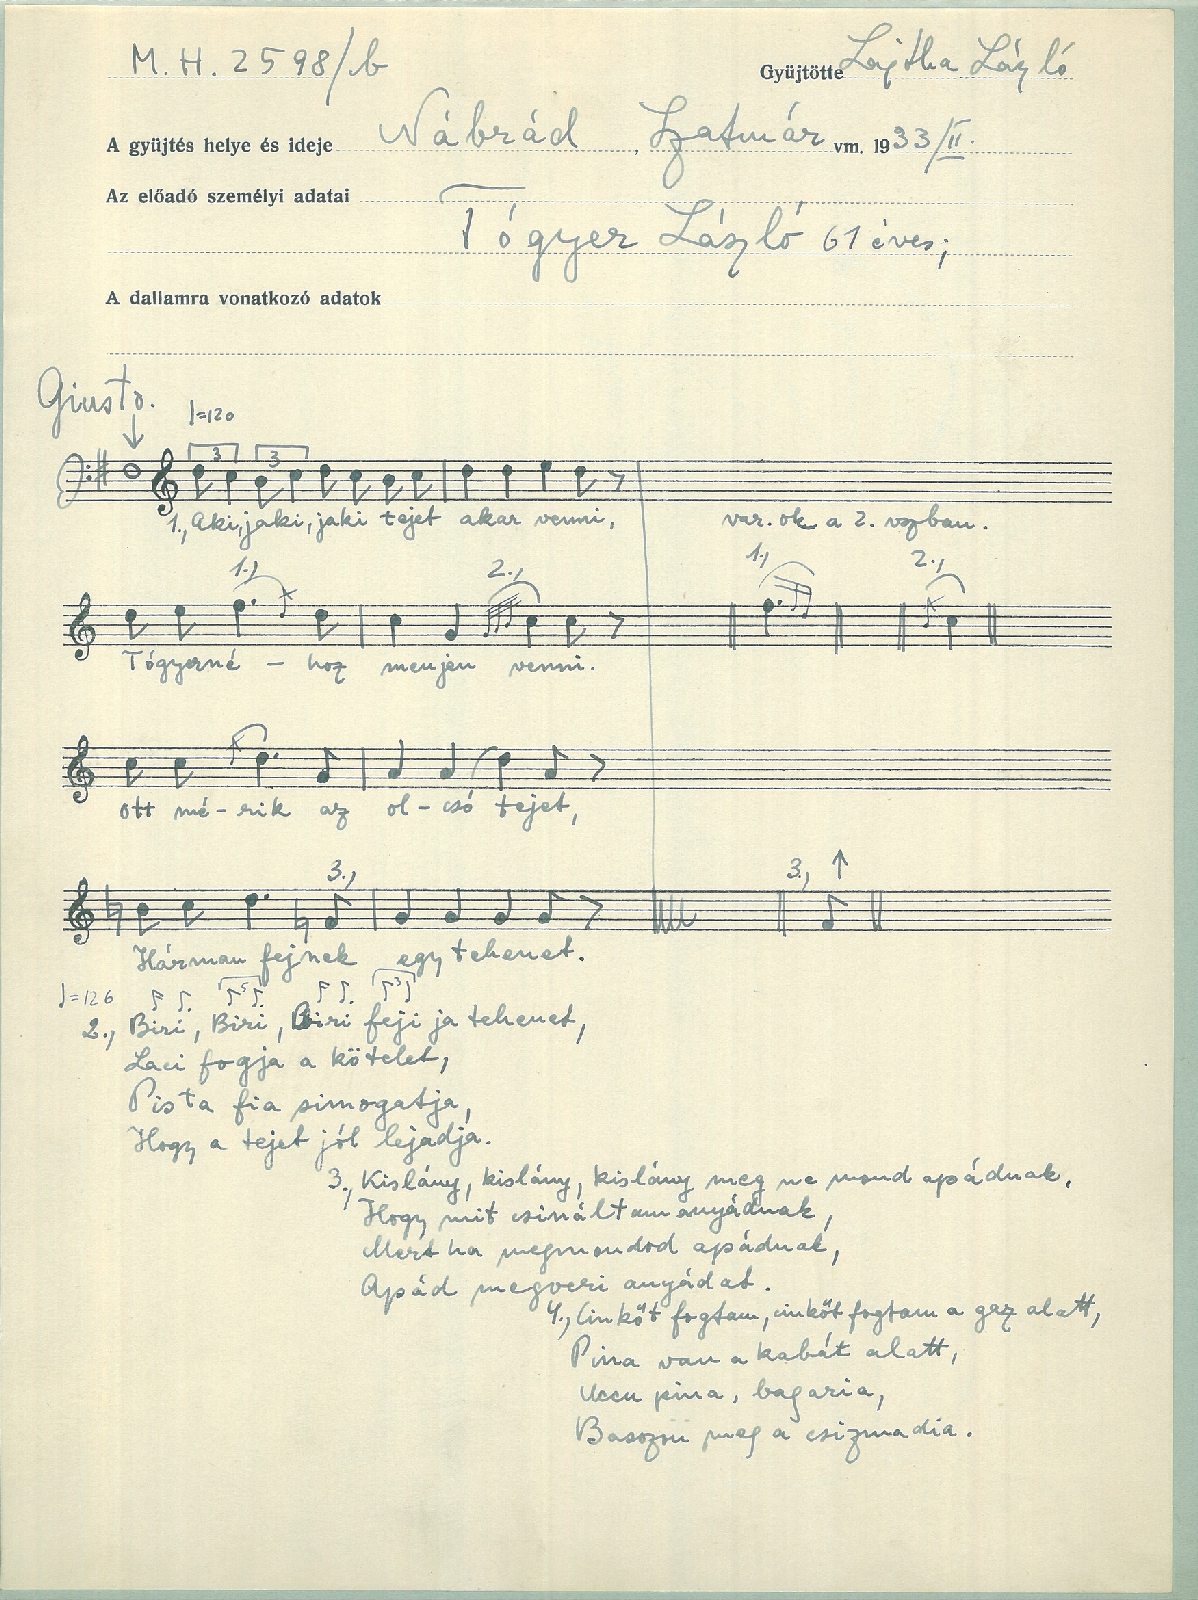 M. H. 2598/b
Gyüjtötte Lajtha László
A gyüjtés helye és ideje Nábrád, Szatmár vm. 1933/II.
Az előadó személyi adatai
Tógyer László 61 éves;
A dallamra vonatkozó adatok
Giusto. ♩=120
3 3
1., Aki, jaki, jaki tejet akar venni, var. ok a 2. vszban.
1., 2., 1., 2.,
Tógyerné - hoz menjen venni.
ott mé - rik az ol - csó tejet,
3., 3., ↑
Hárman fejnek egy tehenet.
♩=126 5 3
2., Biri, Biri, Biri feji ja tehenet,
Laci fogja a kötelet,
Pista fia simogatja,
Hogy a tejet jól lejadja.
3., Kislány, kislány, kislány meg ne mond apádnak,
Hogy mit csináltam anyádnak,
Mert ha megmondod apádnak,
Apád megveri anyádat.
4., Cinköt fogtam, cinköt fogtam a gaz alatt,
Pina van a kabát alatt,
Uccu pina, bagaria,
meg a csizmadia.